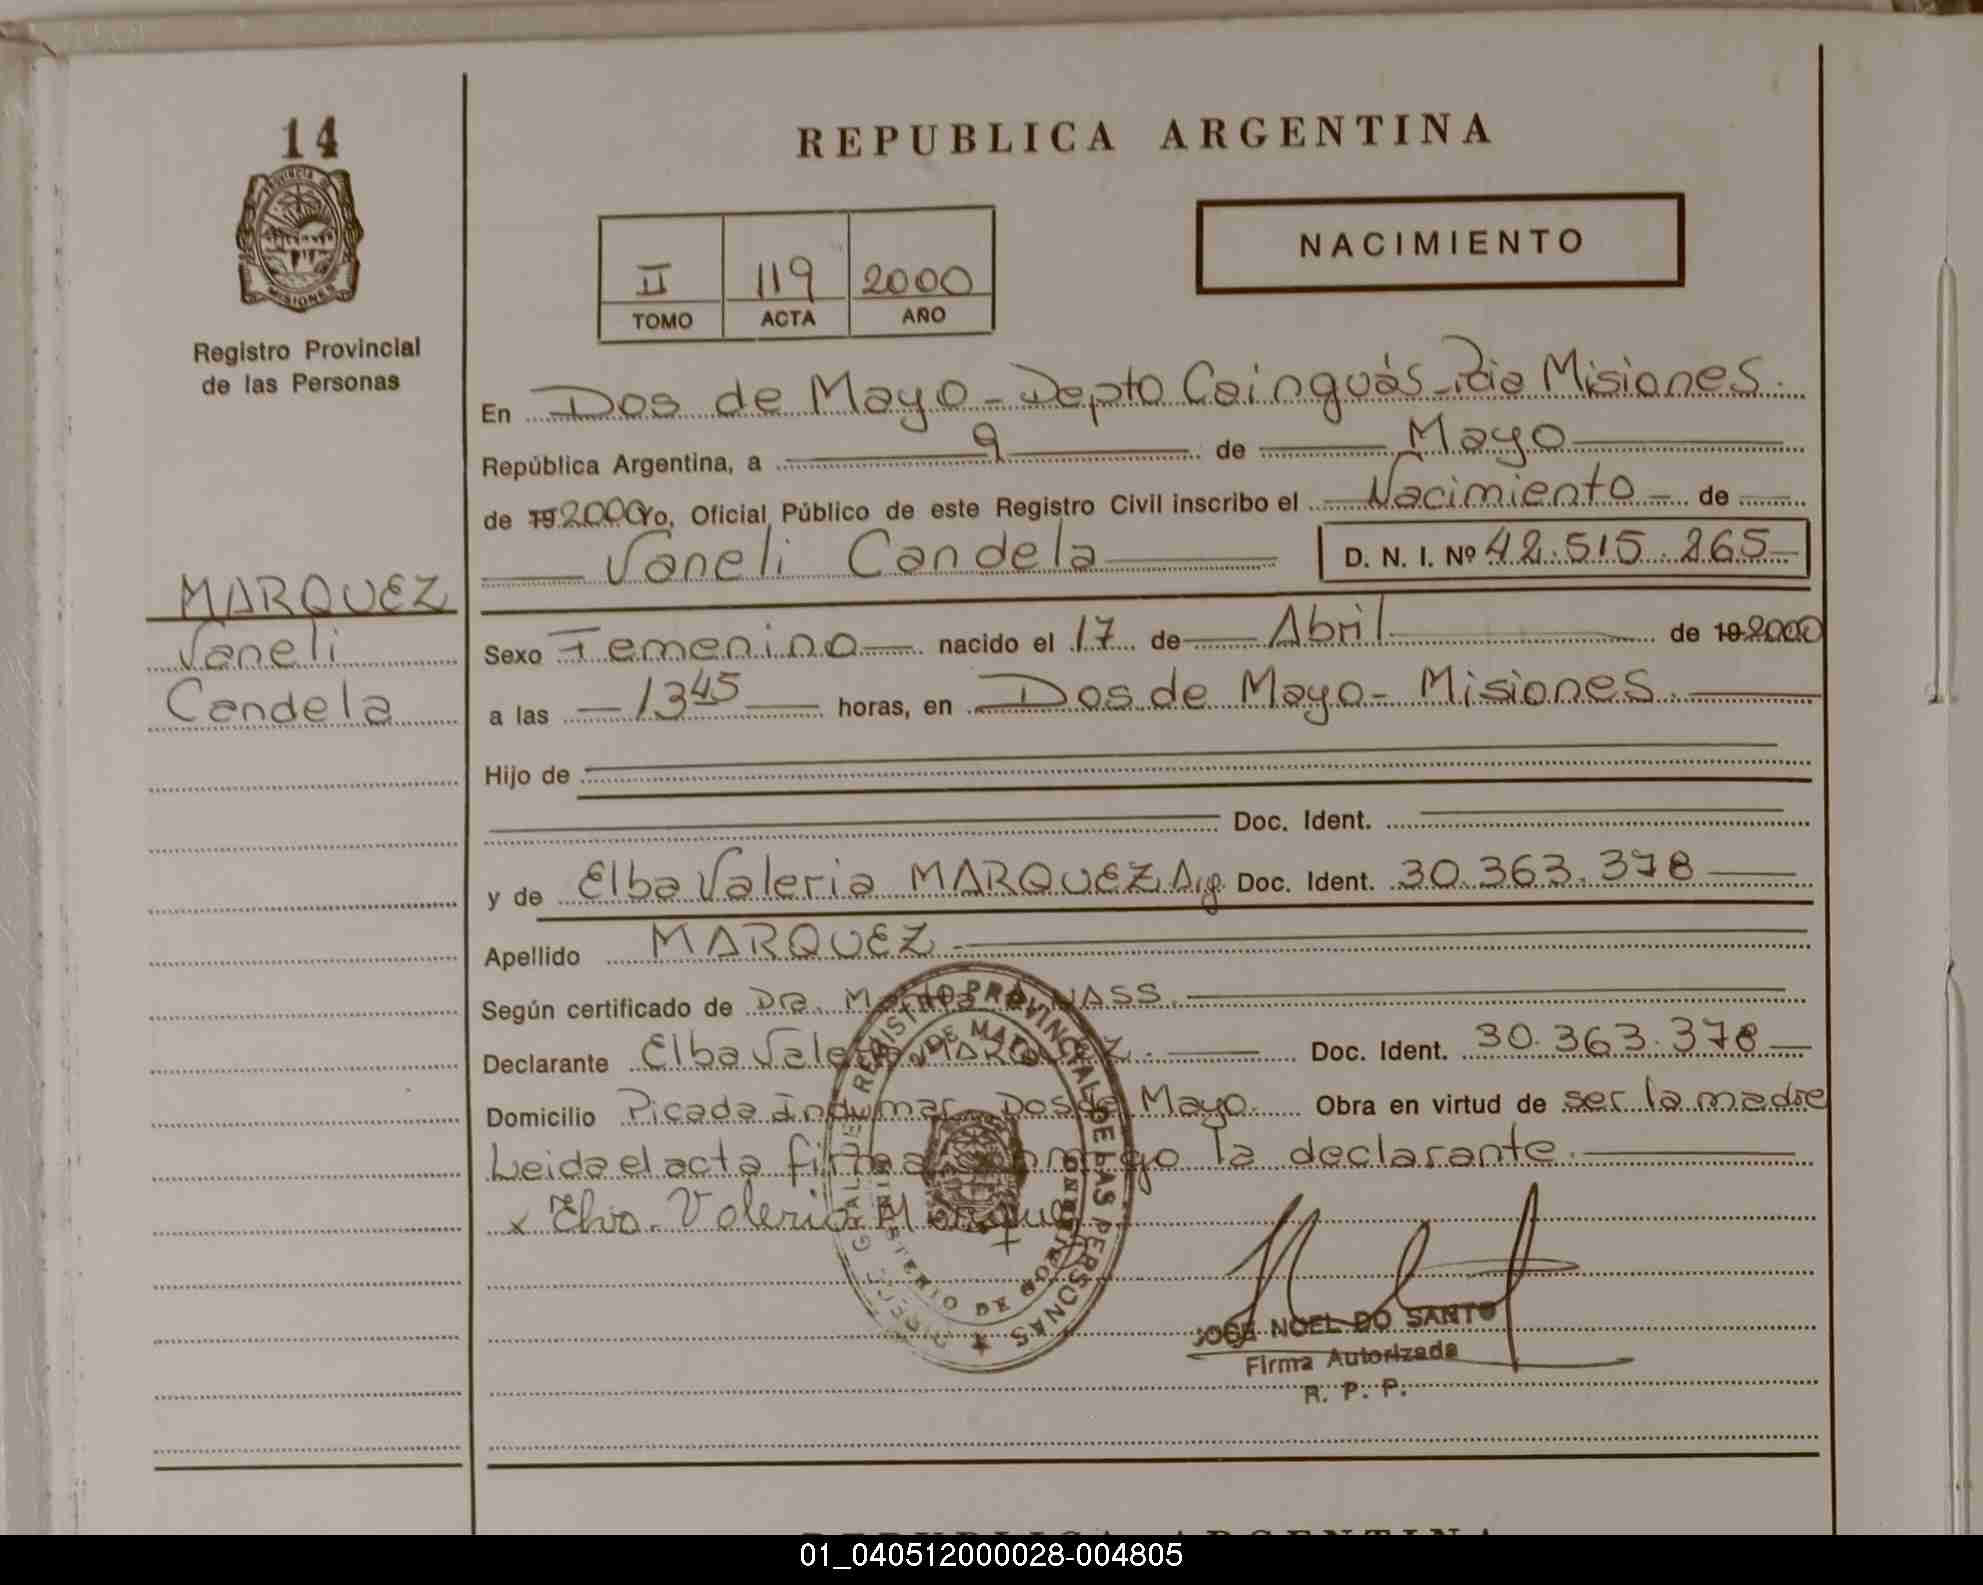 14
PROVINCIA DE
MISIONES
Registro Provincial
de las Personas
MARQUEZ
Vaneli
Candela
REPUBLICA ARGENTINA
II 119 2000
TOMO ACTA AÑO
NACIMIENTO
En Dos de Mayo - Depto Cainguás - Pcia Misiones.
República Argentina, a 9 de Mayo
de 19 2000 Yo, Oficial Público de este Registro Civil inscribo el Nacimiento de
Vaneli Candela D. N. I. Nº 42.515.265
Sexo Femenino nacido el 17 de Abril de 19 2000
a las 13 45 horas, en Dos de Mayo - Misiones.
Hijo de
Doc. Ident.
y de Elba Valeria MARQUEZ, Arg. Doc. Ident. 30.363.378
Apellido MARQUEZ
Según certificado de Dra. NASS.
Declarante Elba Valeria MARQUEZ. Doc. Ident. 30.363.378
Domicilio Picada Indumar Dos de Mayo. Obra en virtud de ser la madre
Leida el acta firma conmigo la declarante.
x Elva. Valeria Marquez
REGISTRO PROVINCIAL DE LAS PERSONAS
2 DE MAYO
MINISTERIO DE GOBIERNO
JOSE NOEL DO SANTO
Firma Autorizada
R. P. P.
REPUBLICA ARGENTINA
01_040512000028-004805